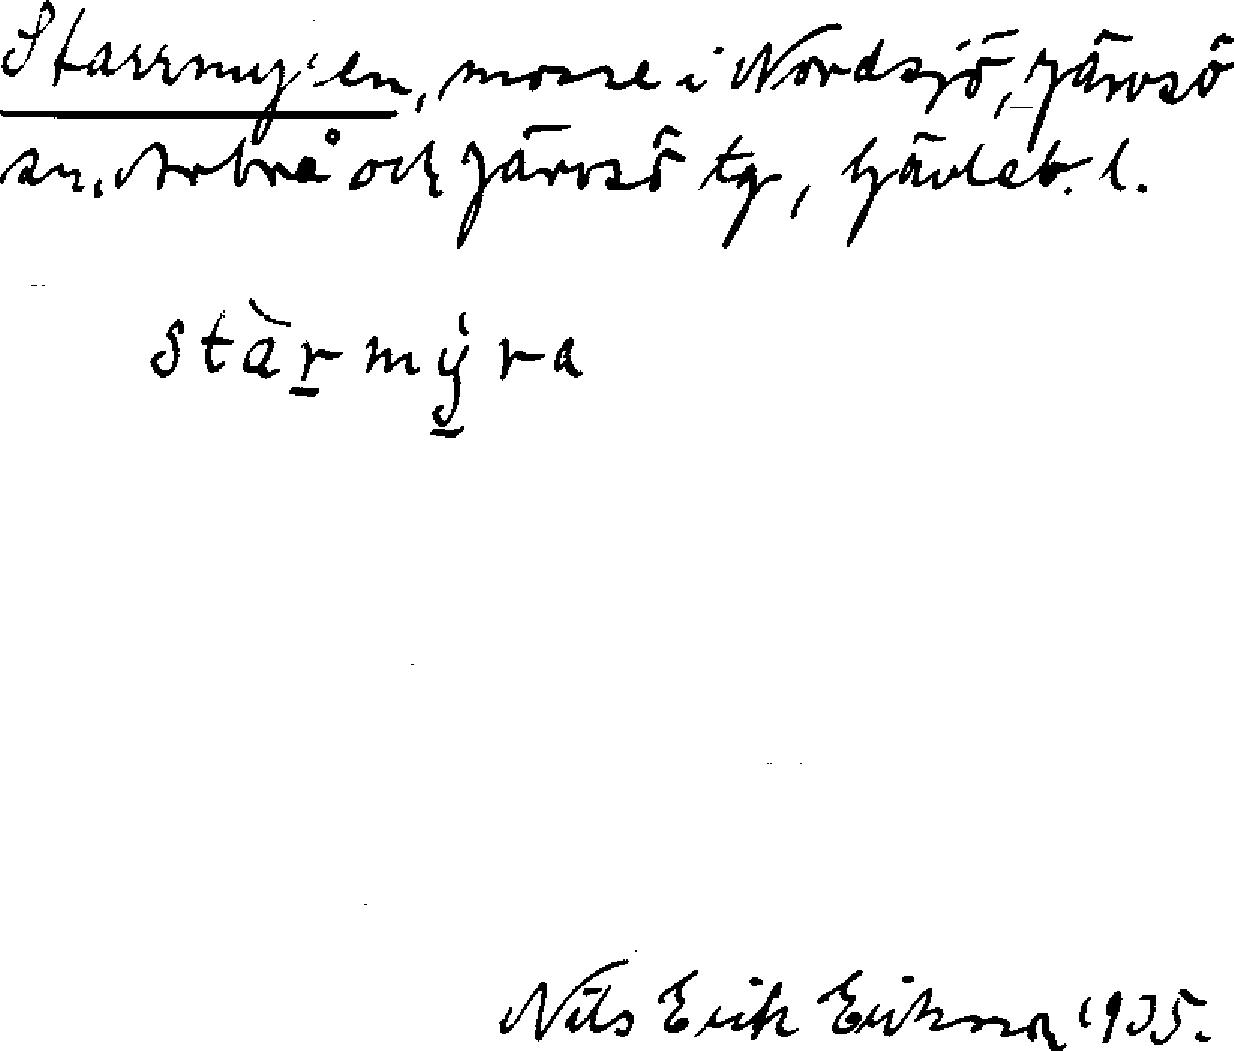 Starrmyren, mosse i Nordsjö, Järvsö
sn, Arbrå och Järvsö tg, Gävleb. l.
stàrmýra
Nils Erik Erikson 1935.